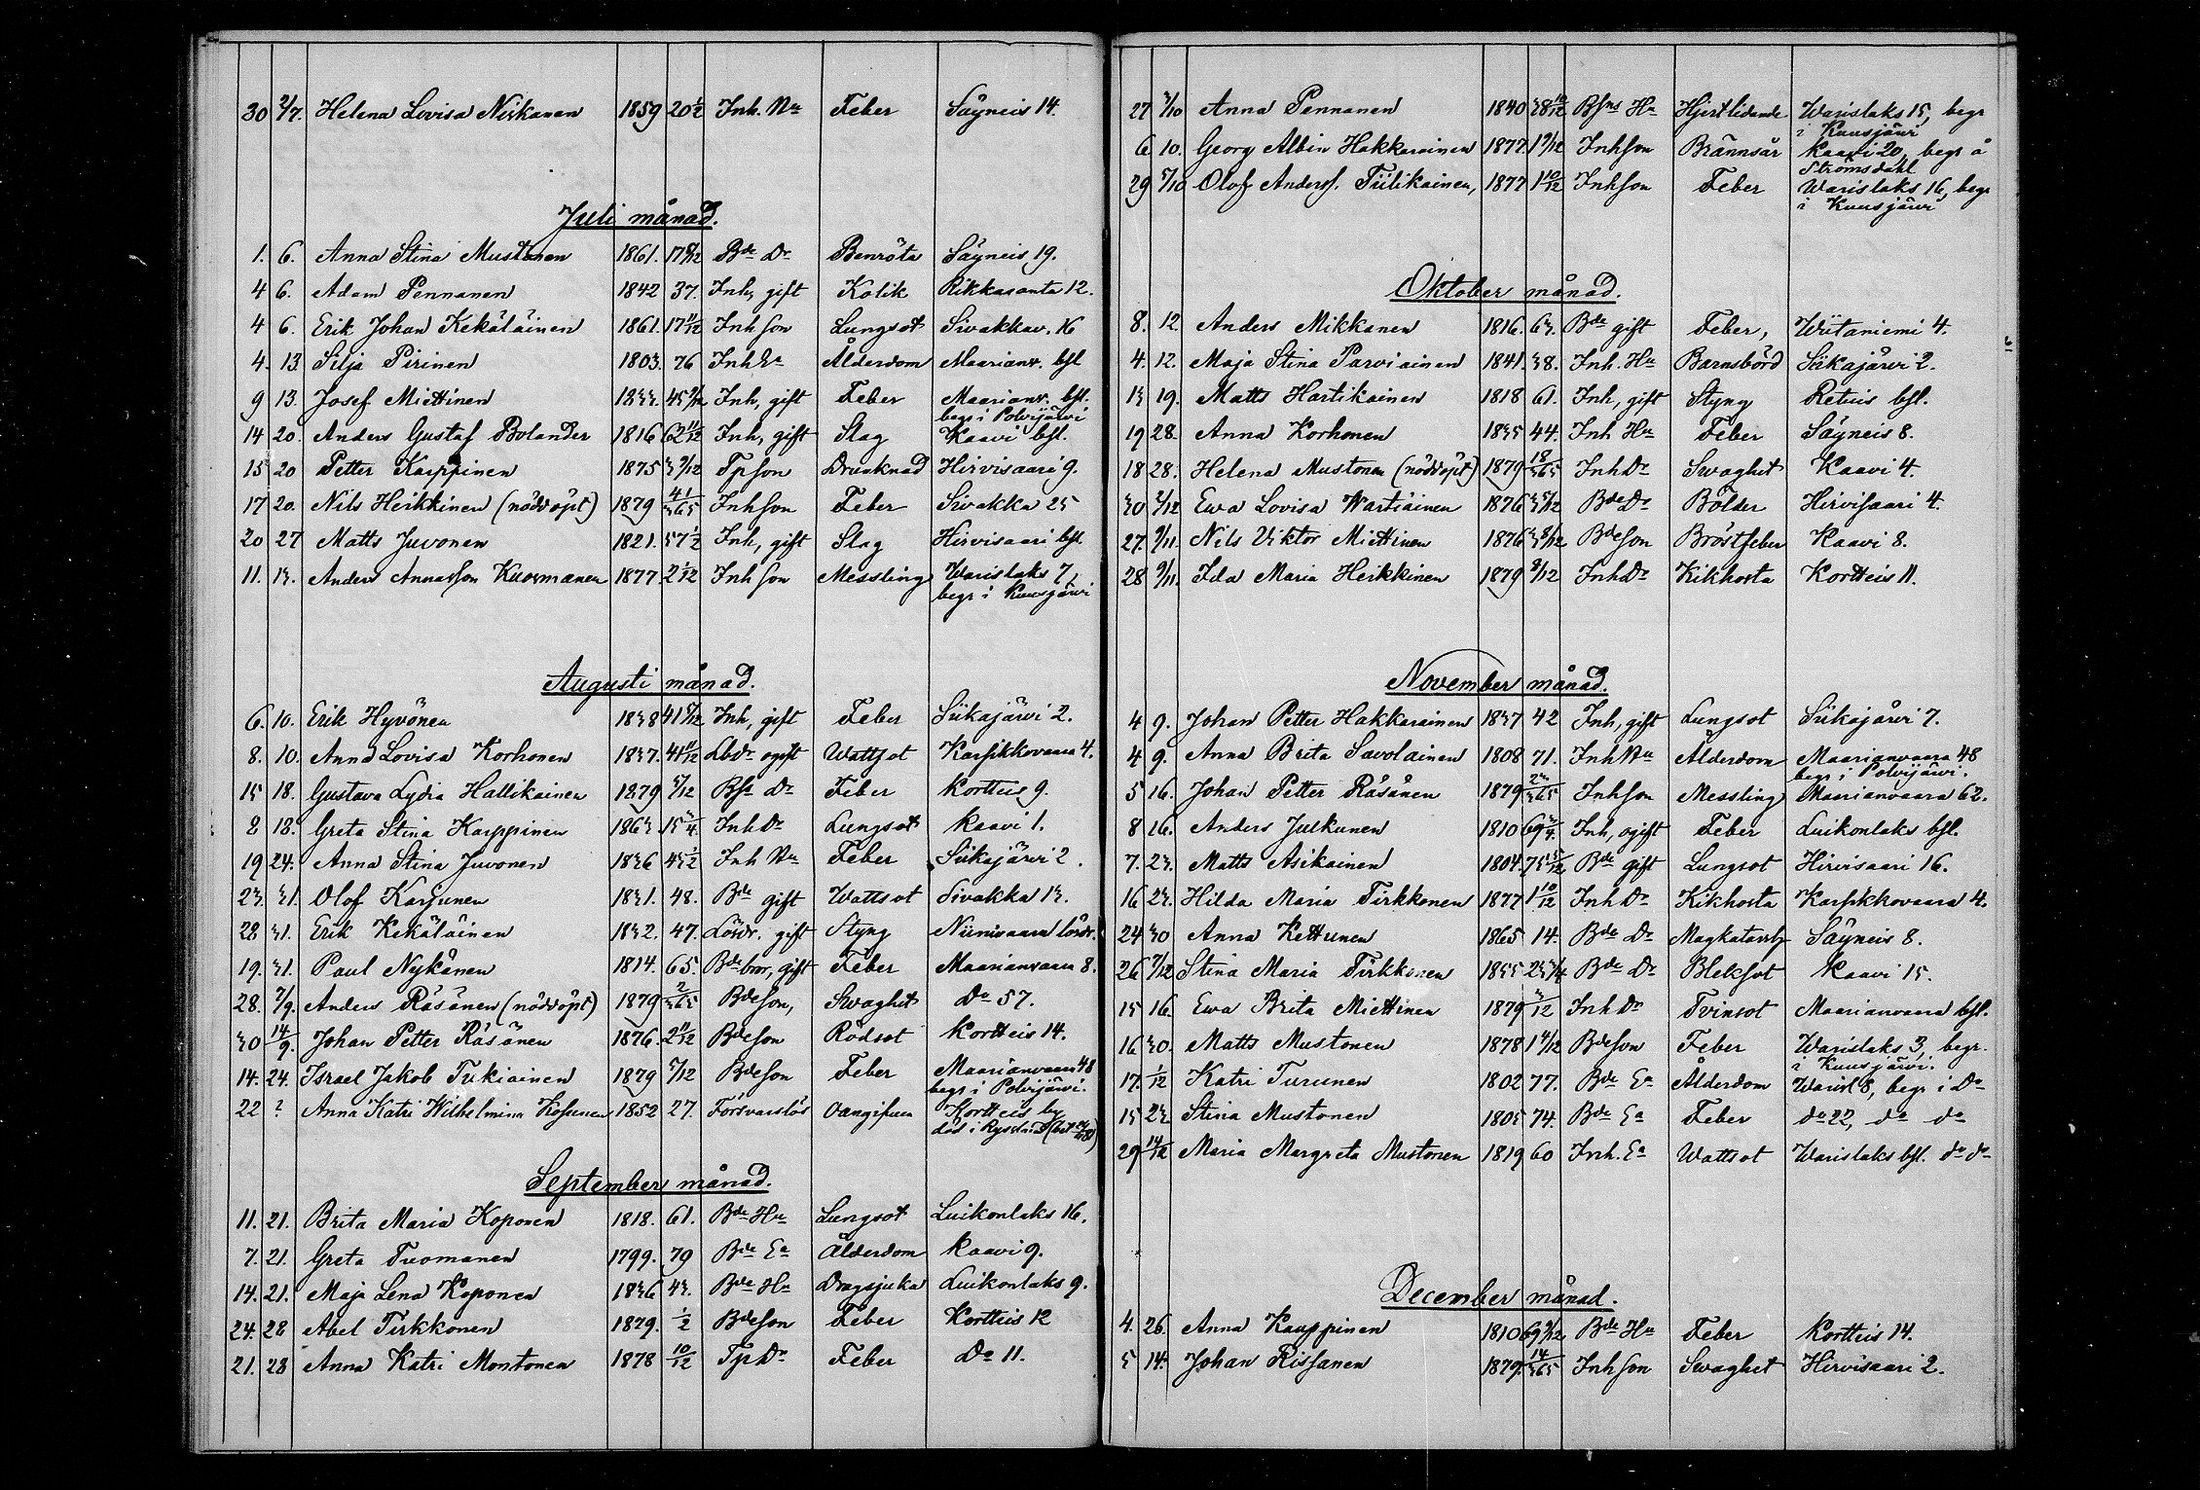 30 2/7. Helena Lovisa Niskanen 1859 20 1/2 Inh. Na Feber Säyneis 14.
Juli månad.
1. 6. Anna Stina Mustonen 1861. 17 8/12 Bde Dr Benröta Säyneis 19.
4 6. Adam Pennanen 1842 37. Inh, gift Kolik Rikkaranta 12.
4 6. Erik Johan Kekäläinen 1861. 17 11/12 Inhson Lungsot Sivakkav. 16
4. 13 Silja Pirinen 1803. 76 Inh Ea Ålderdom Maarianv. bfl
9 13. Josef Miettinen 1833. 45 9/12 Inh, gift Feber Maarianv. bfl.
begr i Polvijärvi
14 20. Anders Gustaf Bolander 1816 62 11/12 Inh, gift Slag Kaavi bfl.
15 20 Petter Karppinen 1875 3 9/12 Tpson Drunknad Hirvisaari 9.
17 20. Nils Heikkinen (nöddöpt) 1879 41/365 Inhson Feber Sivakka 25
20 27 Matts Juvonen 1821. 57 1/2 Inh, gift Slag Hirvisaari bfl.
11. 13. Anders Annasson Kuosmanen 1877. 2 1/12 Inhson MesslingВарislaks 7,
begr i Kuusjärvi
Augusti månad.
6. 10. Erik Hyvönen 1838 41 5/12 Inh, gift Feber Siikajärvi 2.
8. 10. Anna Lovisa Korhonen 1837. 41 11/12 Lbdr ogift Wattsot Karsikkovaara 4.
15 18. Gustava Lydia Hallikainen 1879 5/12 Bfl Dr Feber Kortteis 9.
8 18. Greta Stina Karppinen 1863. 15 3/4. Inh Dr Lungsot Kaavi 1.
19 24. Anna Stina Juvonen 1836 43 1/2 Inh Na Feber Siikajärvi 2.
23. 31. Olof Karjunen 1831. 48. Bde gift Wattsot Sivakka 13.
28 31. Erik Kekäläinen 1832. 47. Lösdr. gift Styng Niinivaara lösdr.
19. 31. Paul Nykänen 1814. 65. Bde bror, gift Feber Maarianvaara 8.
28. 7/9. Anders Räsänen (nöddöpt) 1879 2/365 Bdeson, Swaghet Do 57.
30 14/9. Johan Petter Räsänen 1876. 2 11/12 Bdeson Rödsot Kortteis 14.
14. 24. Israel Jakob Tukiainen 1879 5/12 Bdeson Feber Maarianvaara 48
begr i Polvijärvi.
22 ? Anna Katri Wilhelmina Kosunen 1852 27. Försvarslös oangifven Kortteis by
död i Ryssland
September månad.
11. 21. Brita Maria Koponen 1818. 61. Bde Hu Lungsot Luikonlaks 16.
7. 21. Greta Tuomanen 1799. 79 Bde Ea Ålderdom Kaavi 9.
14. 21. Maja Lena Koponen 1836 43. Bde Hu Dragsjuka Luikonlaks 9.
24. 28 Abel Tirkkonen 1879. 1/2 Bdeson Feber Kortteis 12
21. 28 Anna Katri Montonen 1878 10/12 Tp Dr Feber Do 11.
27 3/10 Anna Pennanen 1840 38 10/12 Bfns Hu Hjertlidande Warislaks 15, begr
i Kuusjärvi
6 10. Georg Albin Hakkarainen 1877. 1 9/12 Inhson Brännsår Kaavi 20, begr å
Strömsdahl
29 5/10 Olof Anders. Tiilikainen, 1877 1 10/12 Inhson Feber Warislaks 16, begr
i Kuusjärvi
Oktober månad.
8. 12. Anders Mikkanen 1816. 63. Bde gift Feber, Wiitaniemi 4.
4. 12. Maja Stina Parviainen 1841. 38. Inh. Hu Barnsbörd Siikajärvi 2.
13 19. Matts Hartikainen 1818 61. Inh, gift Styng Retuis bfl.
19 28. Anna Korhonen 1835 44. Inh Hu Feber Säyneis 8.
18 28. Helena Mustonen (nöddöpt) 1879 18/365 Inh Dr Swaghet Kaavi 4.
30 2/12 Ewa Lovisa Wartiainen 1876 3 5/12 Bde Dr Bölder Hirvisaari 4.
27. 9/11. Nils Viktor Miettinen 1876 3 8/12 Bdeson Bröstfeber Kaavi 8.
28 9/11. Ida Maria Heikkinen 1879 8/12 Inh Dr Kikhosta Kortteis 11.
November månad.
4 9. Johan Petter Hakkarainen 1837 42 Inh, gift Lungsot Siikajärvi 7.
4 9. Anna Brita Savolainen 1808 71. Inh Na Ålderdom Maarianvaara 48
begr i Polvijärvi.
5 16. Johan Petter Räsänen 1879 23/365 Inhson Messling Maarianvaara 62.
8 16. Anders Julkunen 1810 69 3/4. Inh, ogift Feber Luikonlaks bfl.
7. 23. Matts Asikainen 1804. 75 5/12 Bde gift Lungsot Hirvisaari 16.
16 23. Hilda Maria Tirkkonen 1877 1 10/12 Inh Dr Kikhosta Karsikkovaara 4.
24 30 Anna Kettunen 1865 14. Bde Dr Magkatarrh Säyneis 8.
26 7/12 Stina Maria Tirkkonen 1855 23 3/4 Bde Dr Bleksot Kaavi 15.
15 16. Ewa Brita Miettinen 1879 3/12 Inh Dr Tvinsot Maarianvaara bfl.
16 30. Matts Mustonen 1878 1 4/12 Bdeson Feber Warislaks 3, begr.
i Kuusjärvi.
17. 1/12 Katri Turunen 1802 77. Bde Ea Ålderdom Warisl 8, begr i Do
15 23 Stina Mustonen 1805 74. Bde Ea Feber do 22, do do
29 14/12 Maria Margreta Mustonen 1819 60 Inh. Ea Wattsot Warislaks bfl. do do
December månad.
4. 26. Anna Kauppinen 1810 69 9/12 Bde Hu Feber Kortteis 14.
5 14. Johan Rissanen 1879. 14/365 Inhson Swaghet Hirvisaari 2.